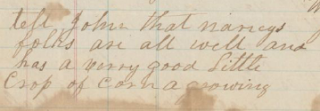 tell John that nancys
folks are all well and
has a verry good Little
Crop of Corn a growing